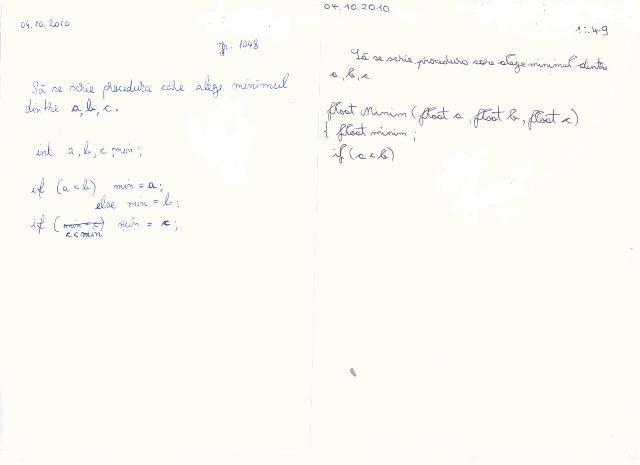 04.10.2010
gr. 1048
Să se scrie procedura care alege minimul
dintre a, b, c.
int a, b, c, min;
if (a < b) min = a;
else min = b;
if (min < c) min = c;
c < min
04.10.2010
Să se scrie procedura care alege minimul dintre
a, b, c
float Minim (float a, float b, float c)
{ float minim;
if (a < b)